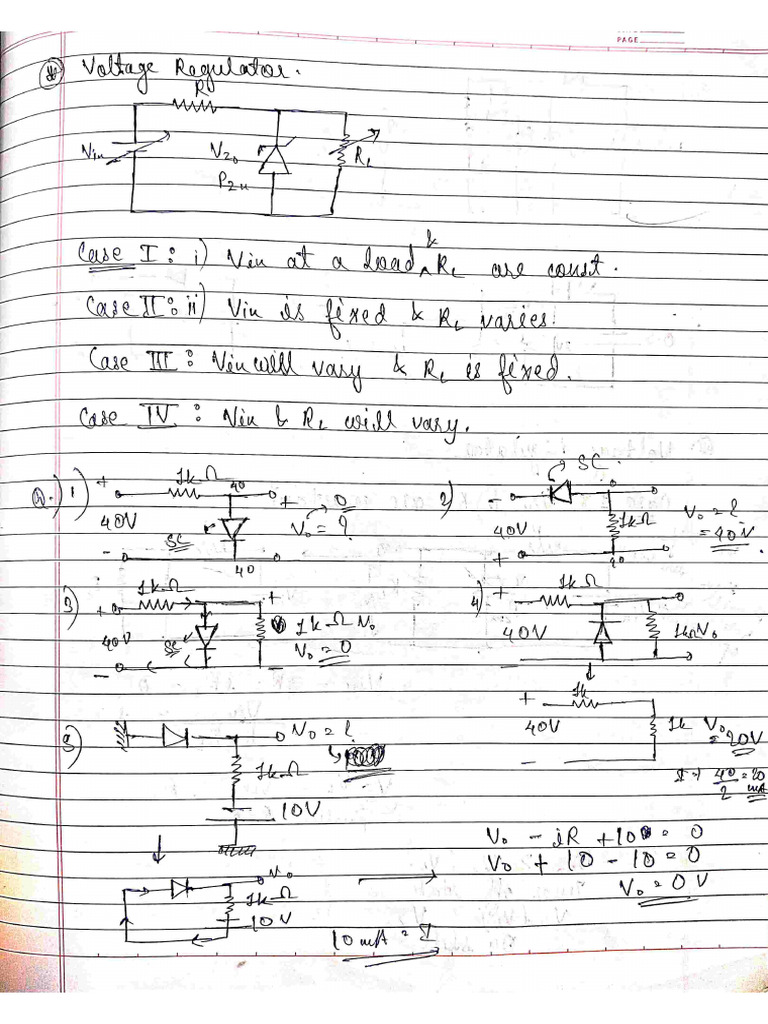 PAGE
* Voltage Regulator.
R
Vin
Vz0
Pzu
RL
Case I : i) Vin at a load & RL are const.
Case II : ii) Vin is fixed & RL varies.
Case III : Vin will vary & RL is fixed.
Case IV : Vin & RL will vary.
Q.) 1) + 1kΩ 40 + 0
40V SC V₀ = ?
- 40
2) - SC 0
40V 1kΩ V₀ = ?
= 40V.
+
3) + 1kΩ +
40V SC 1kΩ V₀
V₀ = 0
- -
4) + 1kΩ
40V 1kΩ V₀
-
+ 1k
40V 1k V₀
= 20V
-
I => 40/2 = 20 mA
5) V₀ = ?
1kΩ
10V
V₀
1kΩ
10V
10 mA = I
V₀ - iR + 10 = 0
V₀ + 10 - 10 = 0
V₀ = 0 V